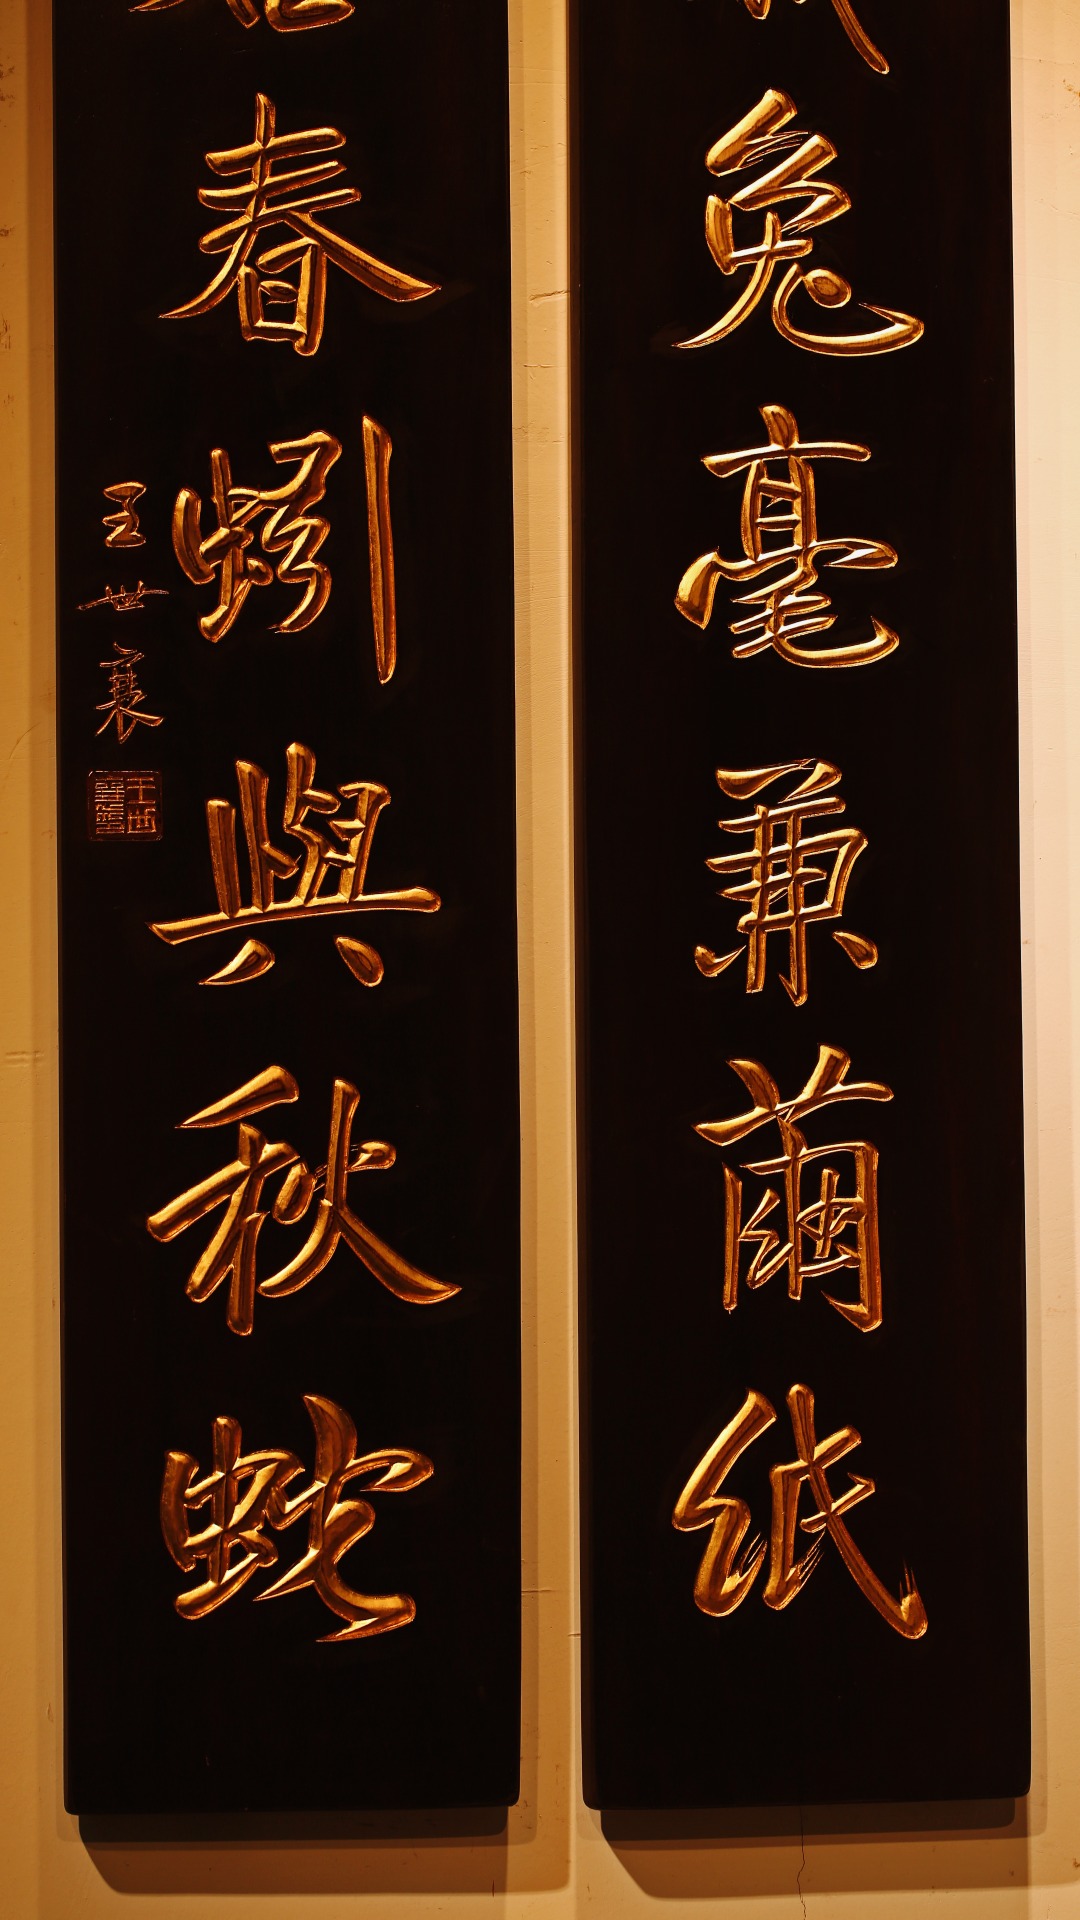 兔毫兼繭紙
春蚓與秋蛇
王世襄